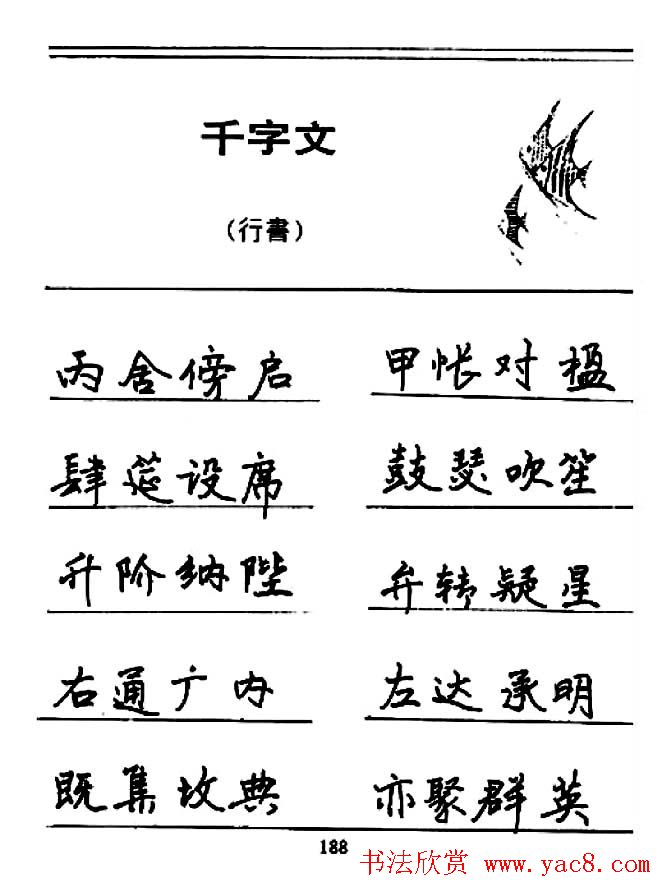 千字文
（行書）
丙舍傍启 甲帐对楹
肆筵设席 鼓瑟吹笙
升阶纳陛 弁转疑星
右通广内 左达承明
既集坟典 亦聚群英
188
书法欣赏 www.yac8.com